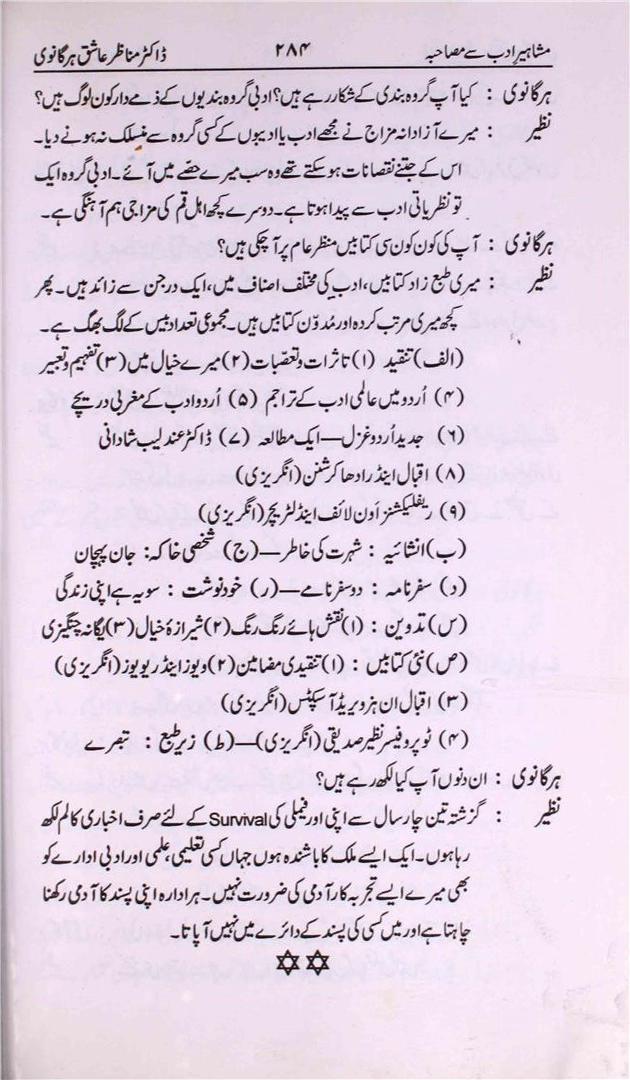 مشاہیرِ ادب سے مصاحبہ ۲۸۴ ڈاکٹر مناظر عاشق ہرگانوی
ہرگانوی : کیا آپ گروہ بندی کے شکار رہے ہیں؟ ادبی گروہ بندیوں کے ذمے دار کون لوگ ہیں؟
نظیر : میرے آزادانہ مزاج نے مجھے ادب یا ادیبوں کے کسی گروہ سے منسلک نہ ہونے دیا۔
اس کے جتنے نقصانات ہو سکتے تھے وہ سب میرے حصّے میں آئے۔ ادبی گروہ ایک
تو نظریاتی ادب سے پیدا ہوتا ہے۔ دوسرے کچھ اہل قلم کی مزاجی ہم آہنگی ہے۔
ہرگانوی : آپ کی کون کون سی کتابیں منظر عام پر آچکی ہیں؟
نظیر : میری طبع زاد کتابیں، ادب کی مختلف اصناف میں، ایک درجن سے زائد ہیں۔ پھر
کچھ میری مرتب کردہ اور مُدوّن کتابیں ہیں۔ مجموعی تعداد بیس کے لگ بھگ ہے۔
(الف) تنقید (۱) تاثرات و تعصّبات (۲) میرے خیال میں (۳) تفہیم و تعبیر
(۴) اُردو میں عالمی ادب کے تراجم (۵) اُردو ادب کے مغربی دریچے
(۶) جدید اُردو غزل—ایک مطالعہ (۷) ڈاکٹر عندلیب شادانی
(۸) اقبال اینڈ رادھا کرشنن (انگریزی)
(۹) ریفلیکشنز اون لائف اینڈ لٹریچر (انگریزی)
(ب) انشائیہ : شہرت کی خاطر—(ج) شخصی خاکہ: جان پہچان
(د) سفرنامہ : دو سفر نامے—(ر) خودنوشت : سو یہ ہے اپنی زندگی
(س) تدوین : (۱) نقش ہائے رنگ رنگ (۲) شیرازۂ خیال (۳) یگانہ چنگیزی
(ص) نئی کتابیں : (۱) تنقیدی مضامین (۲) ویوز اینڈ ریویوز (انگریزی)
(۳) اقبال ان ہز ویریڈ آسپکٹس (انگریزی)
(۴) ٹو پروفیسر نظیر صدیقی (انگریزی)—(ط) زیر طبع : تبصرے
ہرگانوی : ان دنوں آپ کیا لکھ رہے ہیں؟
نظیر : گزشتہ تین چار سال سے اپنی اور فیملی کی Survival کے لئے صرف اخباری کالم لکھ
رہا ہوں۔ ایک ایسے ملک کا باشندہ ہوں جہاں کسی تعلیمی، علمی اور ادبی ادارے کو
بھی میرے ایسے تجربہ کار آدمی کی ضرورت نہیں۔ ہر ادارہ اپنی پسند کا آدمی رکھنا
چاہتا ہے اور میں کسی کی پسند کے دائرے میں نہیں آپاتا۔